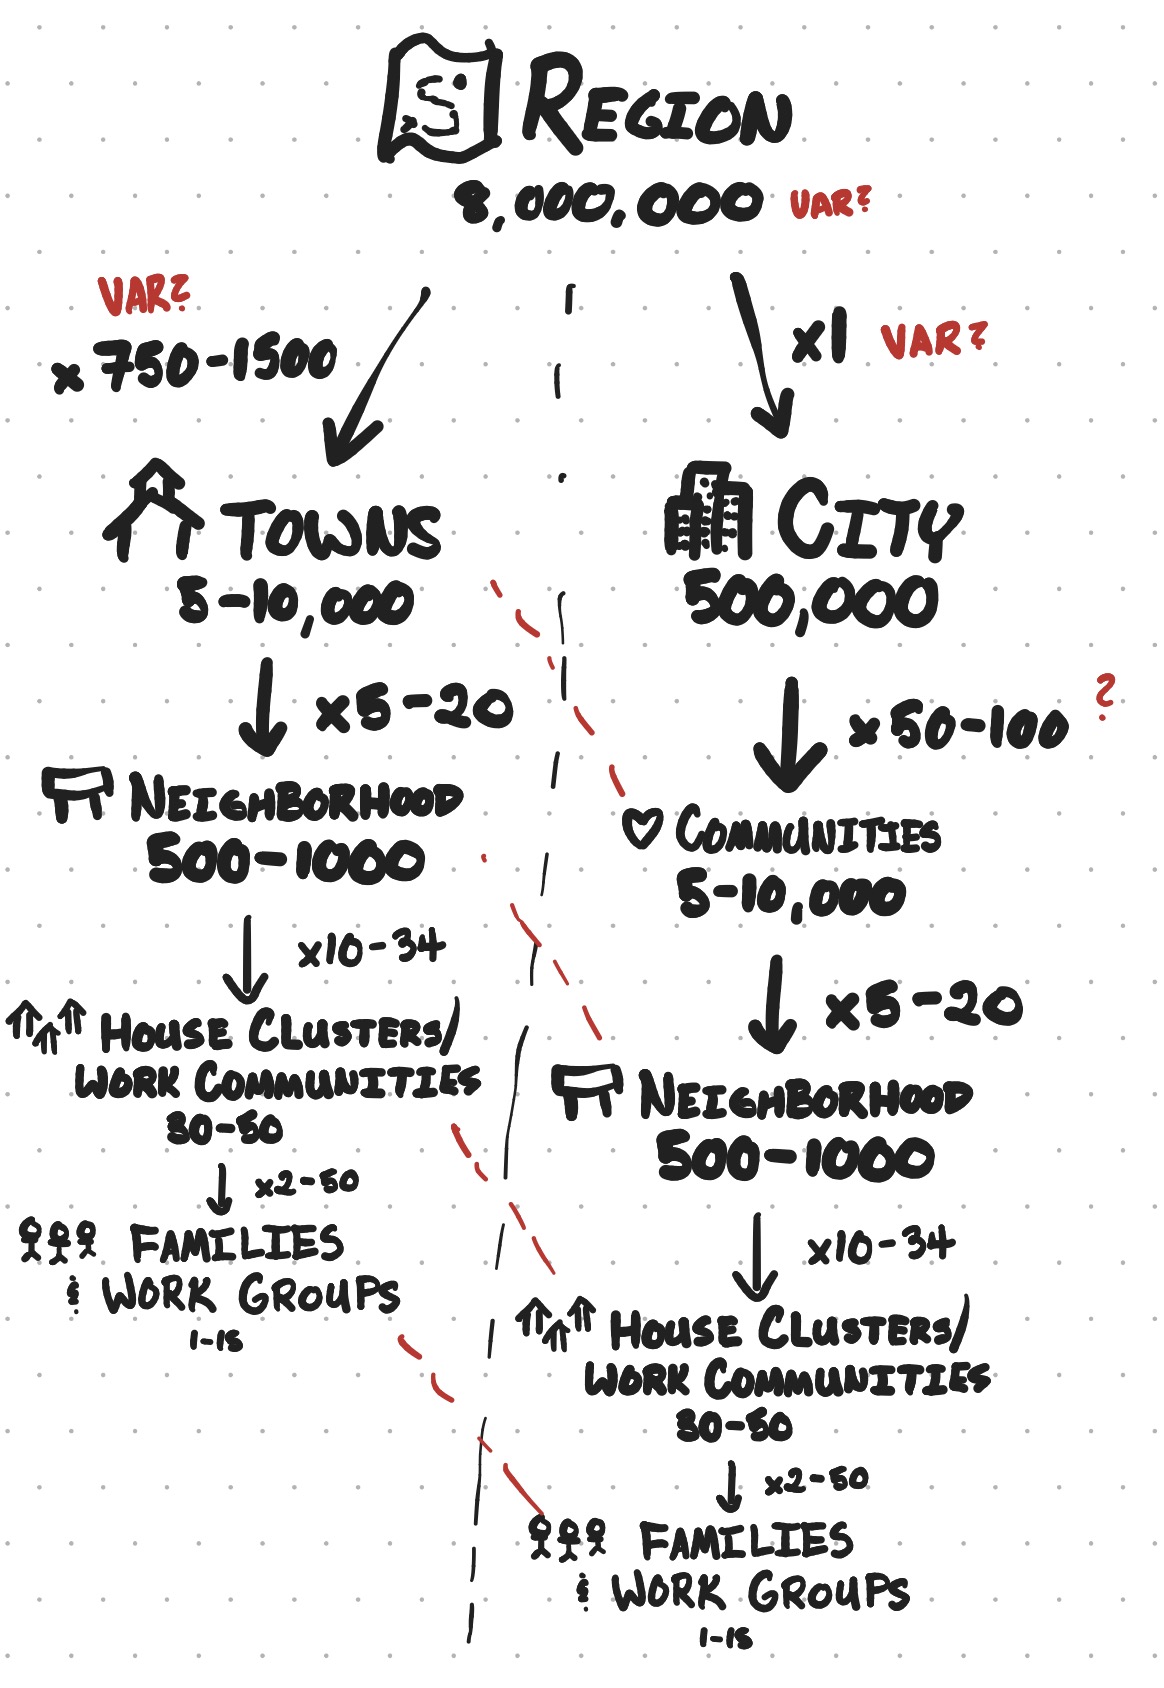 REGION
8,000,000 VAR?
VAR?
x 750-1500
x1 VAR?
TOWNS
5-10,000
CITY
500,000
x5-20
x 50-100 ?
NEIGHBORHOOD
500-1000
COMMUNITIES
5-10,000
x10-34
x5-20
HOUSE CLUSTERS/
WORK COMMUNITIES
30-50
NEIGHBORHOOD
500-1000
x2-50
FAMILIES
& WORK GROUPS
1-15
x10-34
HOUSE CLUSTERS/
WORK COMMUNITIES
30-50
x2-50
FAMILIES
& WORK GROUPS
1-15